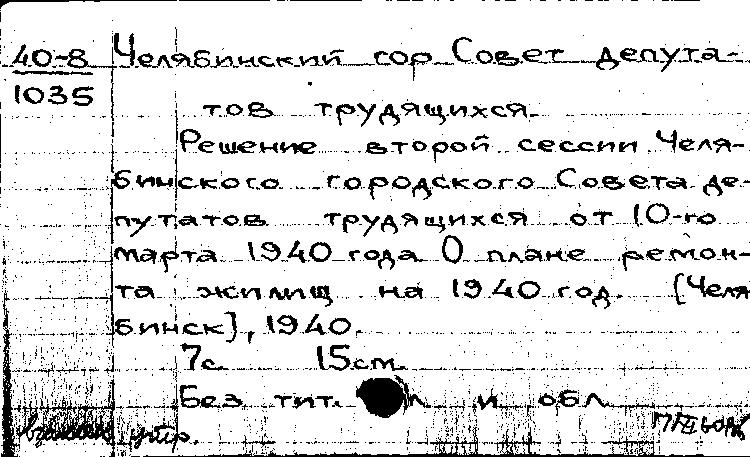 40-8 Челябинский гор Совет депута-
1035 тов трудящихся.
Решение второй сессии Челя-
бинского городского Совета де-
путатов трудящихся от 10-го
марта 1940 года О плане ремон-
та жилищ на 1940 год. [Челя
бинск], 1940.
7с. 15см.
Без тит. л и обл